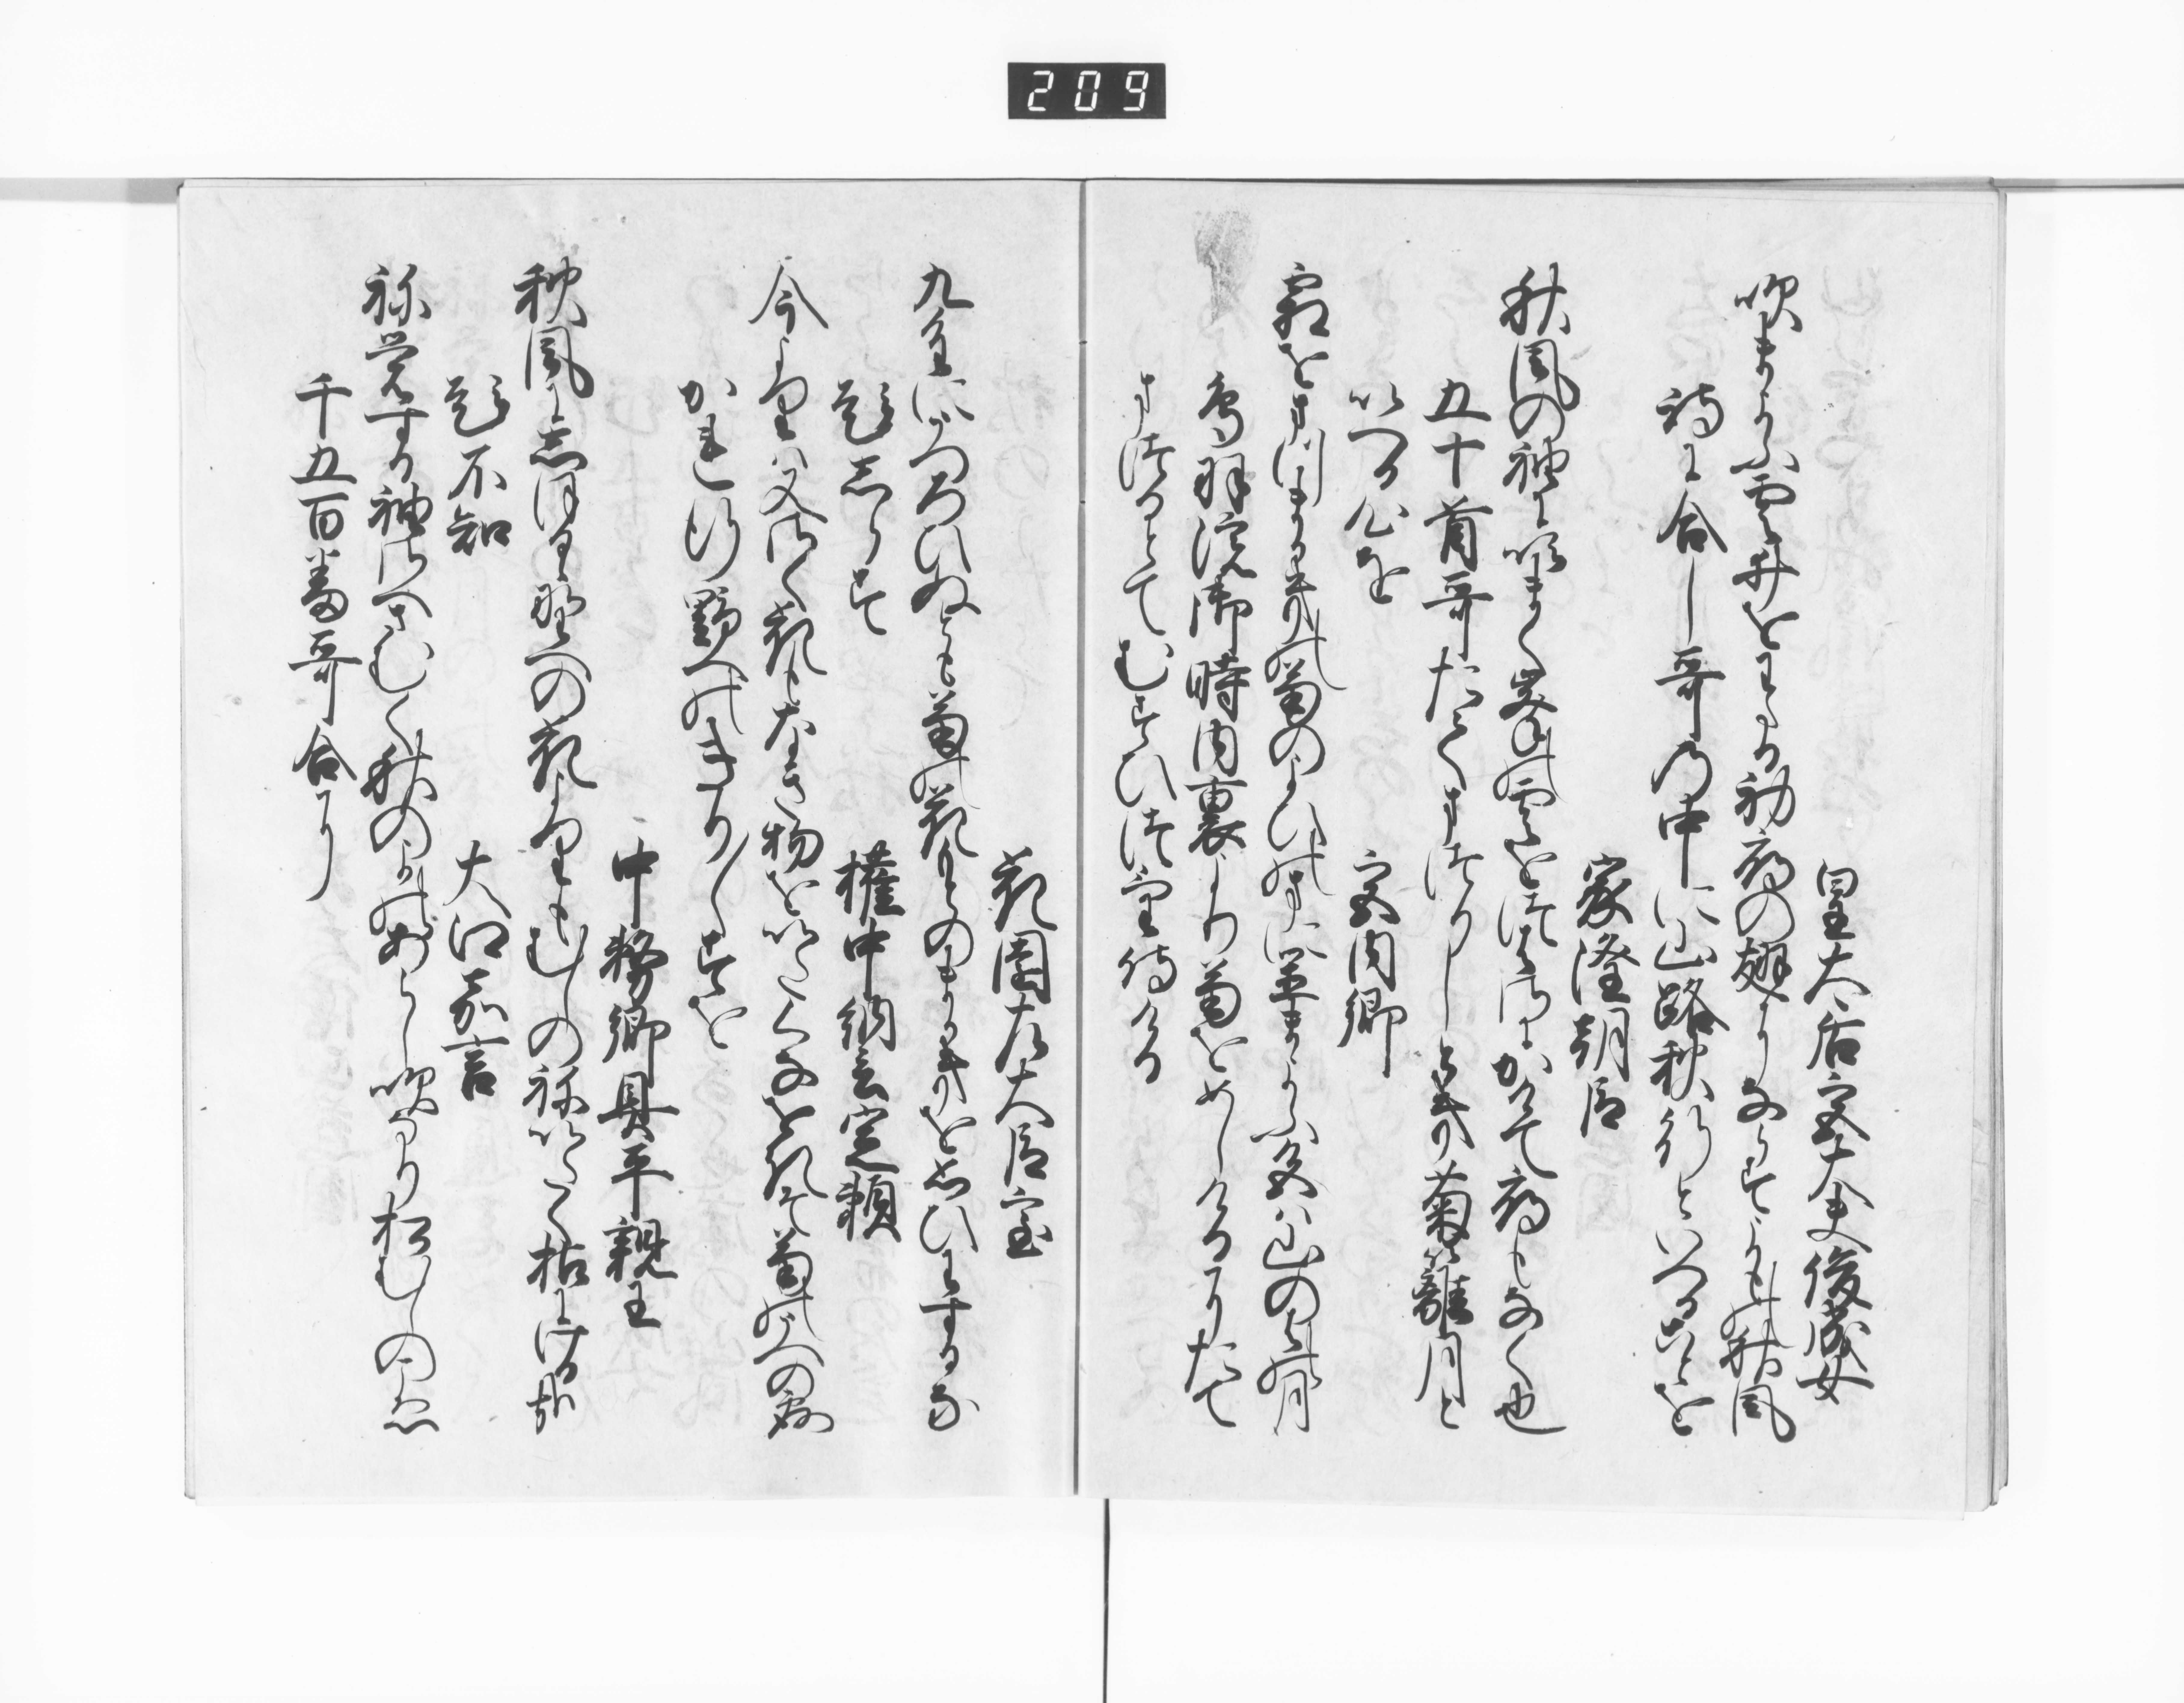 209
皇太后宮大夫俊成女
吹まよふ雲井をわたる初雁の翅にならすよもの秋風
詩に合し哥の中に山路秋行といへることを
家隆朝臣
秋風の袖に吹まく峯の雲をつはさにかけて雁もなく也
五十首哥たてまつりしとき菊籬月と
いへる心を
宮内卿
霜をまつまかきの菊のよひのまにをきまよふ色は山のはの月
鳥羽院御時内裏より菊をめしけるにたて
まつるとてむすひつけ侍ける
花園左大臣室
九重にうつろひぬとも菊の花もとのまかきを思ひわするな
題しらす
権中納言定頼
今よりは又さく花もなき物をいたくなをきそ菊のうへの露
かれ行野へのきり〳〵すを
中務卿具平親王
秋風にしほるゝ野への花よりもむしの祢いたく枯にける哉
題不知
大江嘉言
祢覚する袖さへさむく秋のよのあらし吹なり松むしのこゑ
千五百番哥合に